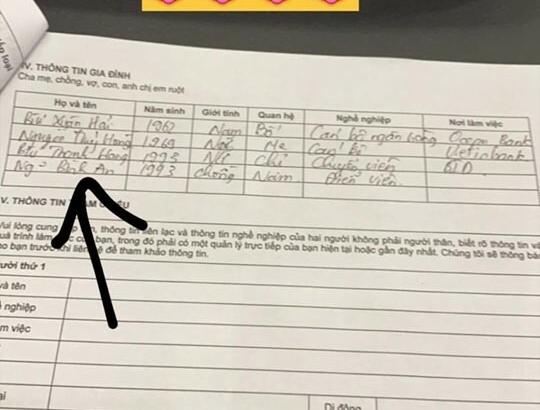 IV. THÔNG TIN GIA ĐÌNH
Cha mẹ, chồng, vợ, con, anh chị em ruột
Họ và tên Năm sinh Giới tính Quan hệ Nghề nghiệp Nơi làm việc
Bùi Xuân Hải 1962 Nam Bố Cán bộ ngân hàng Ocean Bank
Nguyễn Thúy Hằng 1969 Nữ Mẹ Cán bộ Vietinbank
Bùi Thanh 1995 Nữ Chị Chuyên viên
Ngô An 1993 chồng Nam Diễn viên
V. THÔNG TIN THAM
Vui lòng cung thông tin liên lạc và thông tin nghề nghiệp của hai người không phải người thân, biết rõ thông tin về
quá trình làm của bạn, trong đó phải có một quản lý trực tiếp của bạn hiện tại hoặc gần đây nhất. Chúng tôi sẽ thông báo
cho bạn trước khi liên hệ để tham khảo thông tin.
ười thứ 1
và tên
nghiệp
m việc
Di động